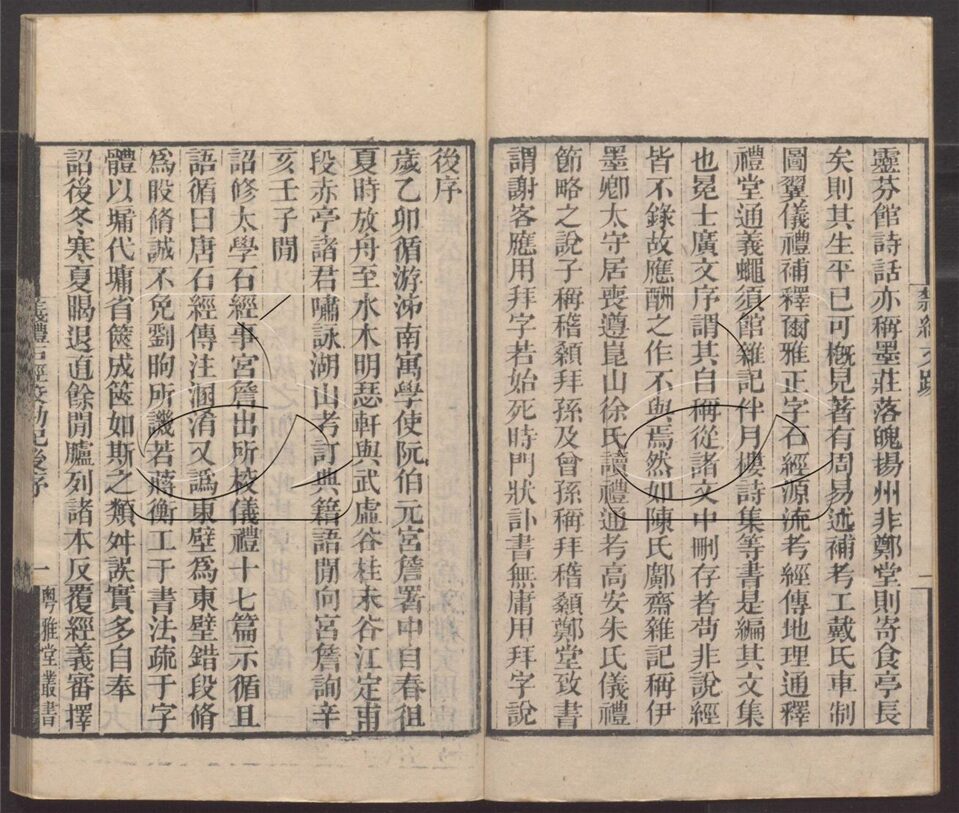 靈芬館詩話亦稱墨莊落魄揚州非鄭堂則寄食亭長
矣則其生平已可概見著有周易述補考工戴氏車制
圖翼儀禮補釋爾雅正字石經源流考經傳地理通釋
禮堂通義蠅須館雜記伴月樓詩集等書是編其文集
也冕士廣文序謂其自稱從諸文中刪存者茍非說經
皆不錄故應酬之作不與焉然如陳氏鄺齋雜記稱伊
墨卿太守居喪遵崑山徐氏讀禮通考高安朱氏儀禮
節略之說子稱稽顙拜孫及曾孫稱拜稽顙鄭堂致書
謂謝客應用拜字若始死時門狀訃書無庸用拜字說
後序
歲乙卯循游泲南寓學使阮伯元宮詹署中自春徂
夏時放舟至水木明瑟軒與武虛谷桂未谷江定甫
段赤亭諸君嘯詠湖山考訂典籍語閒向宮詹詢辛
亥壬子閒
詔修太學石經事宮詹出所校儀禮十七篇示循且
語循曰唐石經傳注溷淆又譌東壁為東壁錯段脩
為股脩誠不免劉昫所譏若蔣衡工于書法疏于字
體以墉代墉省篋成篋如斯之類舛誤實多自奉
詔後冬寒夏暍退直餘閒臚列諸本反覆經義審擇
儀禮石經校勘記後序
一
粵雅堂叢書